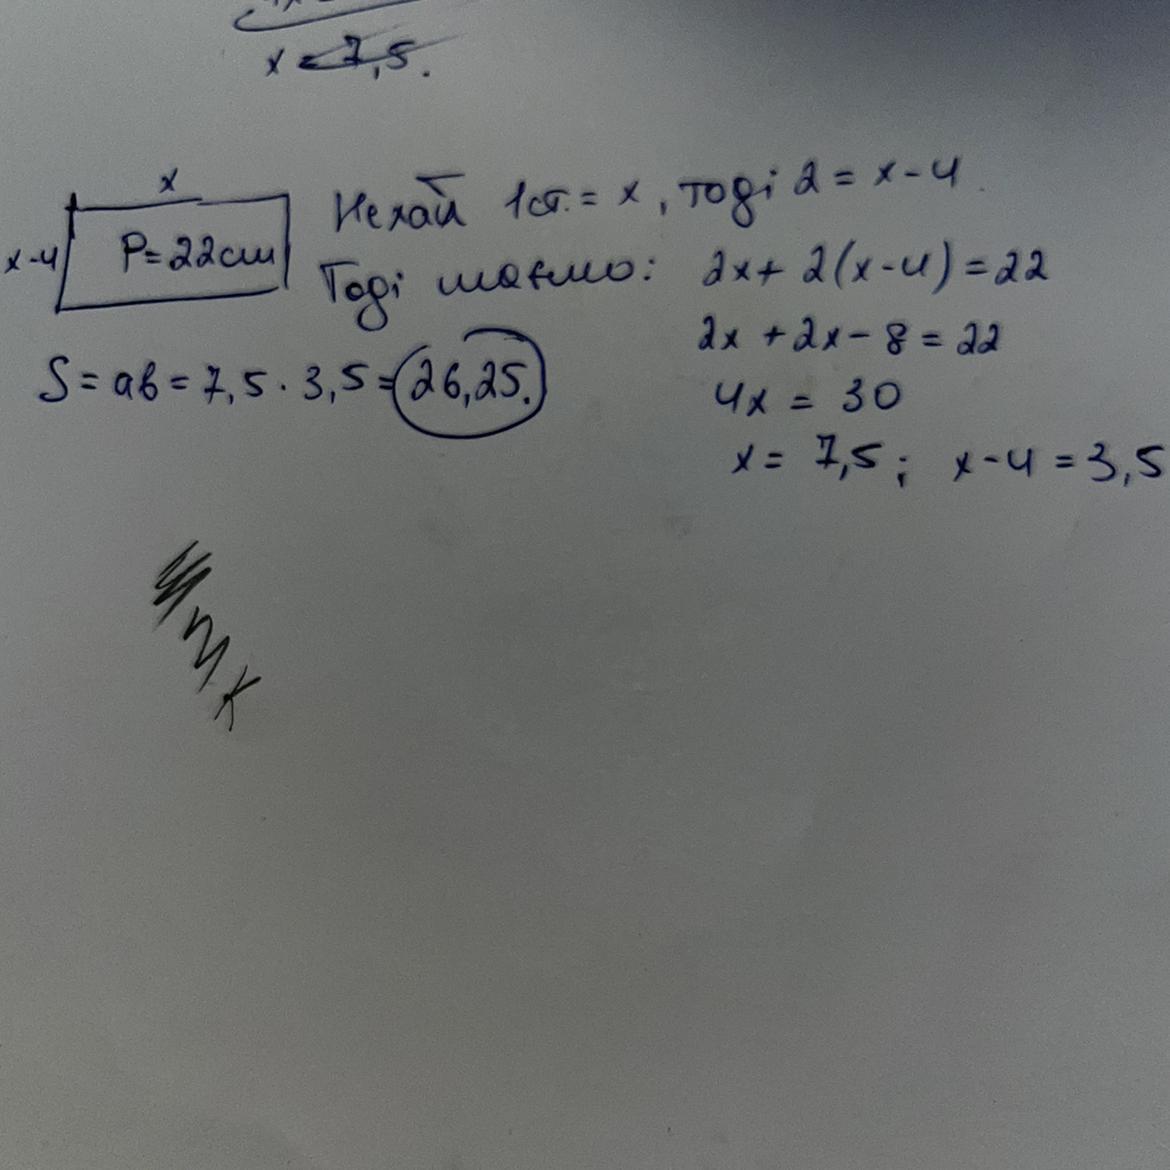 x = 7,5.
x
Нехай 1ст. = x, тоді 2 = x-4.
x-4
P=22см
Тоді маємо: 2x+2(x-4)=22
2x+2x-8=22
S=ab=7,5·3,5=26,25.
4x=30
x=7,5; x-4=3,5